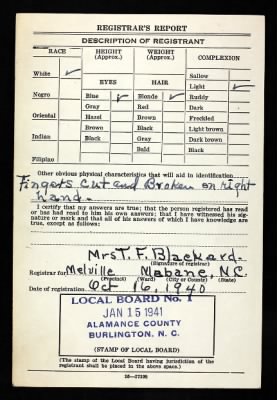 REGISTRAR'S REPORT
DESCRIPTION OF REGISTRANT
RACE
HEIGHT
(Approx.)
WEIGHT
(Approx.)
COMPLEXION
White ✓
Sallow
Light ✓
EYES
HAIR
Negro
Blue ✓
Blonde ✓
Ruddy
Gray
Red
Dark
Oriental
Hazel
Brown
Freckled
Brown
Black
Light brown
Indian
Black
Gray
Dark brown
Bald
Black
Filipino
Other obvious physical characteristics that will aid in identification
Fingers cut and Broken on right
hand.
I certify that my answers are true; that the person registered has read
or has had read to him his own answers; that I have witnessed his
signature or mark and that all of his answers of which I have knowledge are
true, except as follows:
Mrs T. F. Blackard.
(Signature of registrar)
Registrar for Melville Mabane, N.C.
(Precinct) (Ward) (City or County) (State)
Date of registration Oct 16, 1940
LOCAL BOARD No. 1
JAN 15 1941
ALAMANCE COUNTY
BURLINGTON, N. C.
(STAMP OF LOCAL BOARD)
(The stamp of the Local Board having jurisdiction of the registrant
shall be placed in the above space.)